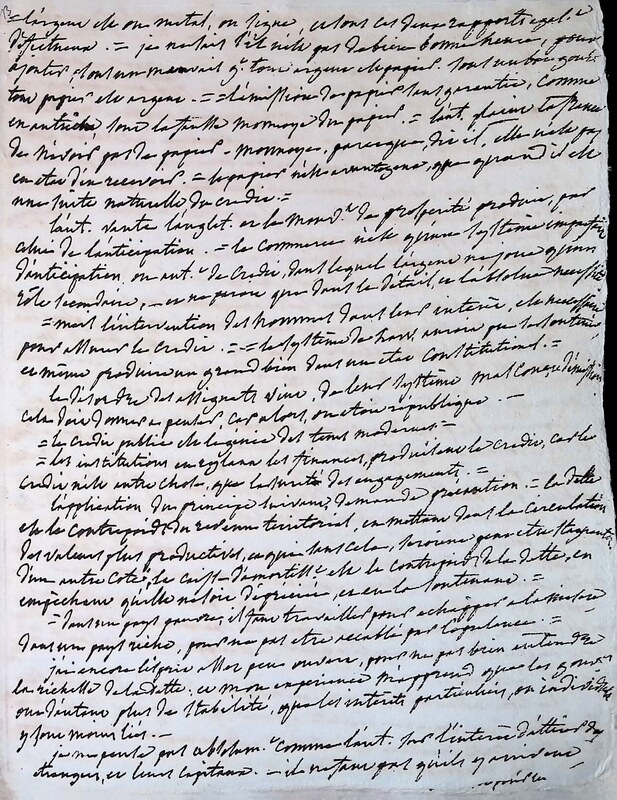 = l'argent est ou metal, ou signe, et sous ces deux rapports egal. t
defectueux. = je ne sais s'il n'est pas de bien bonne heure, pour
ajouter dans un mauvais q. tout argent est papier. tout au
tout papier est argent. = = l'émission de papier sans garantie, comme
en autriche sont la fausse monnoye du papier. = l'aut. la france
de n'avoir pas de papier-monnoye, parceque, dit il, elle n'est pas
en etat d'en recevoir. = le papier n'est avantageux, que quand il est
une suite naturelle du credit. =
l'aut. vante l'anglet. et le mouv.t de prosperité produit, par
celui de l'anticipation. = le commerce n'est qu'un systême
d'anticipation, ou aut. de credit, dans lequel l'argent ne joue qu'un
rôle secondaire, - et ne paroit que dans le détail, et l'absolue necessité
= mais l'intervention des hommes dans leur interêt, est necessaire
pour assurer le credit. = = le systême de
et même produire un grand bien dans un etat constitutionel. =
le desordre des assignats vint, de leur systême mal conçu d'émission
cela doit donner a penser, car alors, on etoit république. -
= le credit public est l'agent des tems modernes. =
= les institutions en regland les finances, produisent le credit, car le
credit n'est autre chose, que la sureté des engagements. =
l'application du principe suivant, demande précaution. = la dette
est le contrepoids du revenu territorial, en mettant dans la circulation
des valeurs plus productives, ce qui sans cela,
d'un autre coté, la caisse d'amortiss.t est le contrepoids de la dette, en
empêchant qu'elle ne soit depreciée, et en la soutenant. =
= dans un pays pauvre, il faut travailler pour echapper a la misere
dans un pays riche, pour ne pas etre accablé par l'opulence. =
j'ai encore l'esprit assez peu ouvert, pour ne pas bien entendre
la richesse de la dette. et mon experience m'apprend que les
ont d'autant plus de stabilité, que les interêts particuliers, ou individuels
y sont moins liés. -
je ne pense pas absolum.t comme l'aut. sur l'interêt d'attirer des
etrangers, et leurs capitaux. - il ne faut pas qu'ils y arrivent